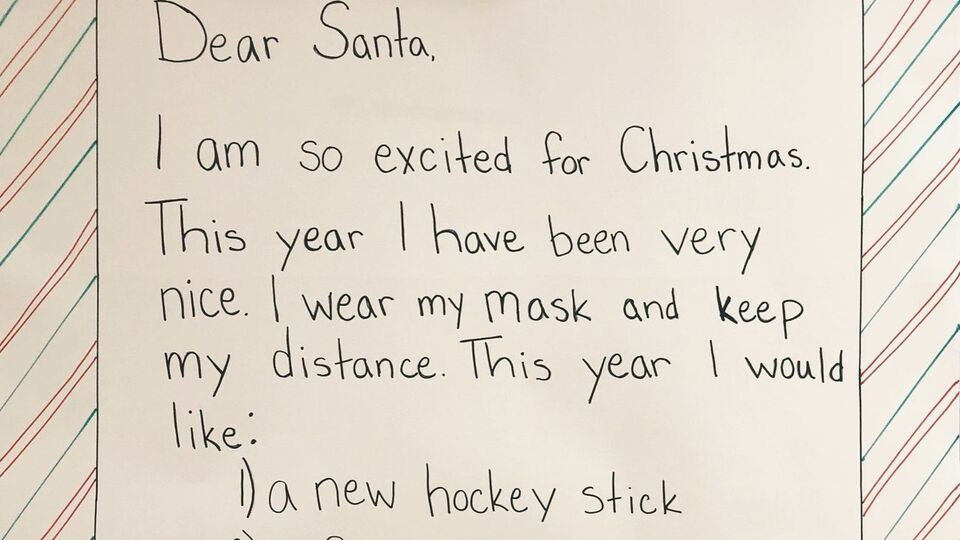 Dear Santa,
I am so excited for Christmas.
This year I have been very
nice. I wear my mask and keep
my distance. This year I would
like:
1) a new hockey stick